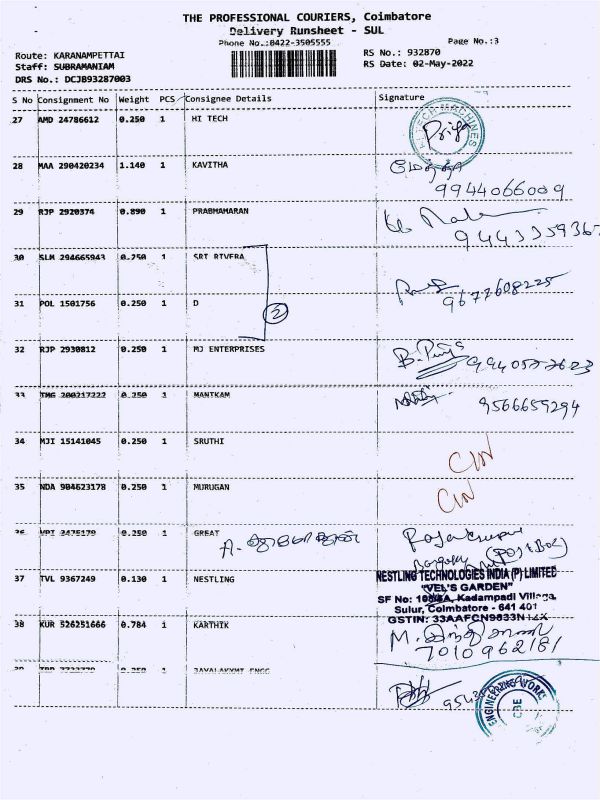 THE PROFESSIONAL COURIERS, Coimbatore
Delivery Runsheet - SUL
Phone No.:0422-3505555
Page No.:3
Route: KARANAMPETTAI
Staff: SUBRAMANIAM
DRS No.: DCJB93287003
RS No.: 932870
RS Date: 02-May-2022
S No Consignment No Weight PCS Consignee Details Signature
27 AMD 24786612 0.250 1 HI TECH
HI TECH MACHINES
Priya
28 MAA 290420234 1.140 1 KAVITHA
9944066009
29 RJP 2920374 0.890 1 PRABHAHARAN
30 SLM 294665943 0.250 1 SRI RIVERA
31 POL 1501756 0.250 1 D
2
9677608225
32 RJP 2930812 0.250 1 MJ ENTERPRISES
33 TMG 200217222 0.250 1 MANIKAM
9566659294
34 MJI 15141045 0.250 1 SRUTHI
35 NDA 904623178 0.250 1 MURUGAN
36 VPI 2475179 0.250 1 GREAT
37 TVL 9367249 0.130 1 NESTLING
NESTLING TECHNOLOGIES INDIA (P) LIMITED
"VEL'S GARDEN"
Kadampadi Village,
Sulur, Coimbatore - 641 401
38 KUR 526251666 0.784 1 KARTHIK
7010962181
39 0.250 1 JAYALAKXMI ENGG
ENGINEERING WORKS
CBE